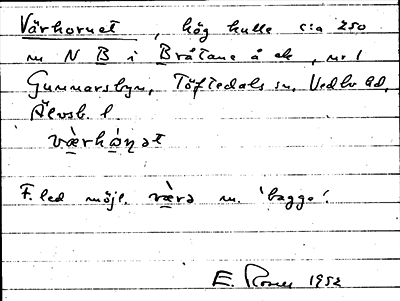 Värhornet, hög kulle c:a 250
m N B i Bråtane å ek, nr 1
Gunnarsbyn, Töftedals sn, Vedbo hd,
Älvsb. l.
F. led möjl. være m. 'bagge'.
E. Rosell 1952